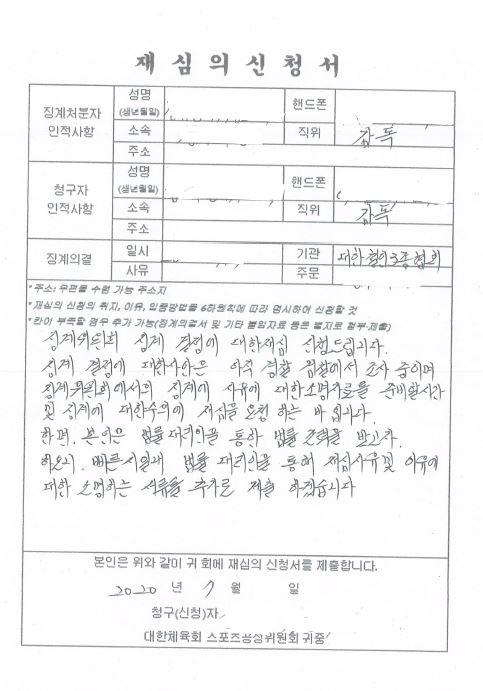 재 심 의 신 청 서
징계처분자
인적사항
성명
(생년월일)
핸드폰
소속
직위
감독
주소
청구자
인적사항
성명
(생년월일)
핸드폰
소속
직위
감독
주소
징계의결
일시
기관
대한철인3종협회
사유
주문
*주소: 우편물 수령 가능 주소지
*재심의 신청의 취지, 이유, 입증방법을 6하원칙에 따라 명시하여 신청할 것
*칸이 부족할 경우 추가 가능(징계의결서 및 기타 붙임자료 등은 별지로 첨부·제출)
징계위원회 징계 결정에 대한재심 신청드립니다.
징계 결정에 대한사안은 아직 경찰 검찰에서 조사 중이며
징계위원회에서의 징계에 사유에 대한소명자료를 준비할시간
및 징계에 대한수의에 재심을 요청 하는 바 입니다.
한편. 본인은 법률대리인을 통하 법률 조력을 받고자.
하오니. 빠른시일내 법률 대리인을 통해 재심사유및 이유에
대한 소명하는 서류을 추가로 제출 하겠습니다
본인은 위와 같이 귀 회에 재심의 신청서를 제출합니다.
2020 년 7 월 일
청구(신청)자
대한체육회 스포츠공정위원회 귀중